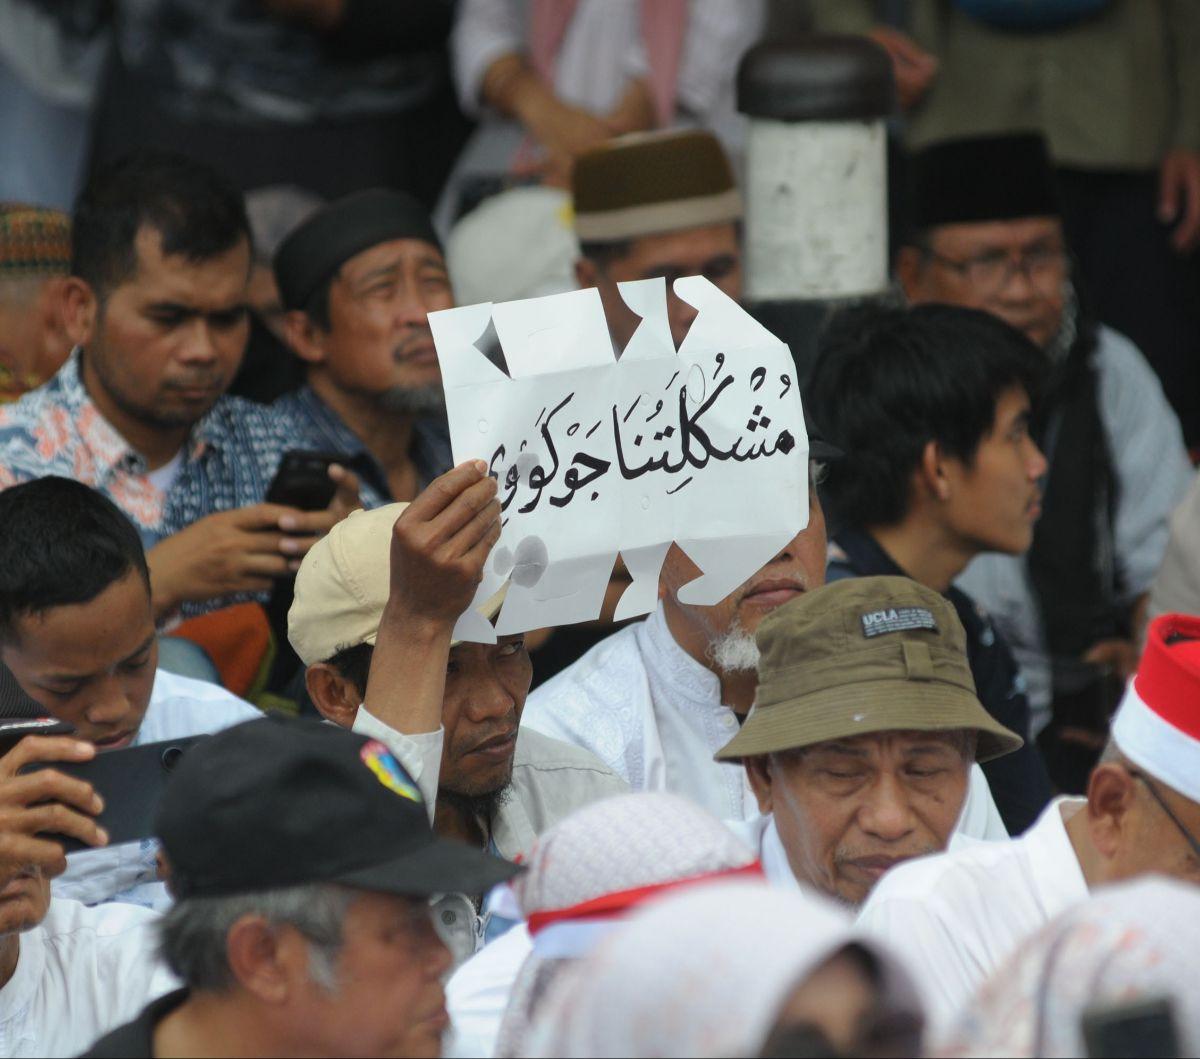 مُشْكُلِتُنَا جَوْكَوْوِي
UCLA